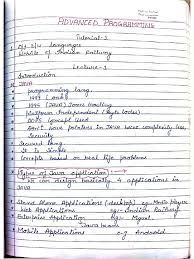 ADVANCED PROGRAMMING
Tutorial-1
languages
of Indian Railway
Lecture-1
Introduction
JAVA
programming lang.
1995 (JAVA) James Gosling
Platform Independent (byte codes)
OOPS Concept
Don't have pointers in Java
security
Secured lang.
It is simple
Concepts based on real life problems
Types of Java application:
We can design basically 4 applications in
JAVA
Stand Alone Applications (desktop) eg- Media player
Web Applications eg- Indian Railway
Enterprise Application eg- Management
Java beans
Mobile Applications eg Android